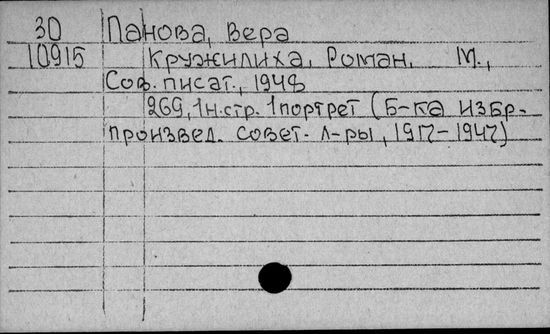 30 Панова, Вера
10915 Кружилиха. Роман. М.,
Сов. писат., 1948
269, 1 н. стр. 1 портрет (Б-ка избр.
произвед. совет. л-ры, 1917-1947)